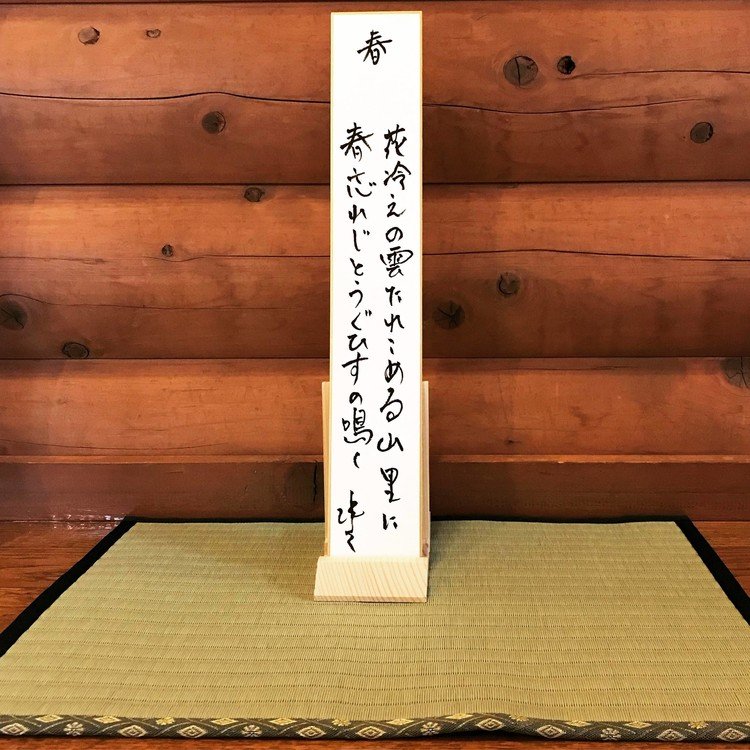 春
花冷えの雲たれこめる山里に
春忘れじとうぐひすの鳴く